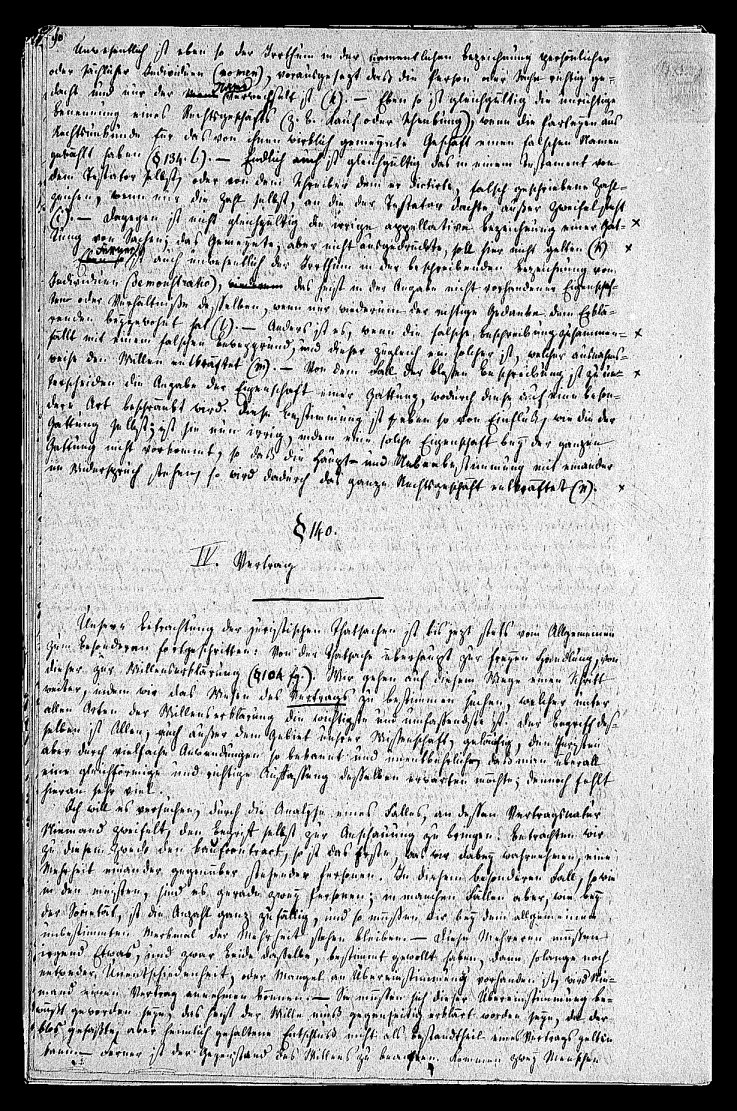 90
Unwesentlich ist eben so der Irrthum in der namentlichen Bezeichnung persönlicher
oder sächlicher Individuen (nomen), vorausgesezt daß die Person oder Sache richtig ge-
dacht und nur der Name verwechselt ist (h). — Eben so ist gleichgültig die unrichtige
Benennung eines Rechtsgeschäfts (z. B. Kauf oder Schenkung), wenn die Parteyen aus
Rechtsunkunde für das von ihnen wirklich gemeynte Geschäft einen falschen Namen
gewählt haben (§ 134. l). — Endlich auch ist gleichgültig das in einem Testament von
dem Testator selbst, oder von dem Schreiber dem er dictirte, falsch geschriebene Zahl-
zeichen, wenn nur die Zahl selbst, an die der Testator dachte, außer Zweifel steht
(i). — Dagegen ist nicht gleichgültig die irrige appellative Bezeichnung einer Gat-
tung von Sachen; das Gemeynte, aber nicht ausgedrückte, soll hier nicht gelten (k)
Ferner ist auch unwesentlich der Irrthum in der beschreibenden Bezeichnung von
Individuen (demonstratio), das heist in der Angabe nicht vorhandener Eigenschaf-
ten oder Verhältniße desselben, wenn nur wiederum der richtige Gedanke dem Erklä-
renden beygewohnt hat (l). — Anders ist es, wenn die falsche Beschreibung zusammen-
fällt mit einem falschen Beweggrund, und dieser zugleich ein solcher ist, welcher ausnahms-
weise den Willen entkräftet (m). — Von dem Fall der bloßen Beschreibung ist zu un-
terscheiden die Angabe der Eigenschaft einer Gattung, wodurch diese auf eine beson-
dere Art beschränkt wird. Diese Bestimmung ist eben so von Einfluß, wie die der
Gattung selbst; ist sie nun irrig, indem eine solche Eigenschaft bey der ganzen
Gattung nicht vorkommt, so daß die Haupt- und Nebenbestimmung mit einander
im Widerspruch stehen, so wird dadurch das ganze Rechtsgeschäft entkräftet (n).
§ 140.
IV. Vertrag
Unsere Betrachtung der juristischen Thatsachen ist bis jezt stets vom Allgemeinen
zum Besonderen fortgeschritten: Von der Thatsache überhaupt zur freyen Handlung, von
dieser zur Willenserklärung (§ 104 fg.). Wir gehen auf diesem Wege einen Schritt
weiter, indem wir das Wesen des Vertrags zu bestimmen suchen, welcher unter
allen Arten der Willenserklärung die wichtigste und umfassendste ist. Der Begriff des-
selben ist Allen, auch außer dem Gebiet unsrer Wissenschaft, geläufig, den Juristen
aber durch vielfache Anwendungen so bekannt und unentbehrlich, daß man überall
eine gleichförmige und richtige Auffassung desselben erwarten möchte; dennoch fehlt
hieran sehr viel.
Ich will es versuchen, durch die Analyse eines Falles, an dessen Vertragsnatur
Niemand zweifelt, den Begriff selbst zur Anschauung zu bringen. Betrachten wir
zu diesem Zweck den Kaufcontract, so ist das Erste, was wir dabey wahrnehmen, eine
Mehrheit einander gegenüber stehender Personen. In diesem besonderen Fall, so wie
in den meisten, sind es gerade zwey Personen; in manchen Fällen aber, wie bey
der Societät, ist die Anzahl ganz zufällig, und so müssen wir bey dem allgemeinen
unbestimmten Merkmal der Mehrheit stehen bleiben. — Diese Mehreren müssen
irgend Etwas, und zwar beide dasselbe, bestimmt gewollt haben, denn solange noch
entweder Unentschiedenheit, oder Mangel an Übereinstimmung vorhanden ist, wird Nie-
mand einen Vertrag annehmen können. — Sie müssen sich dieser Übereinstimmung be-
wußt geworden seyn, das heist der Wille muß gegenseitig erklärt worden seyn, da der
blos gefaßte, aber heimlich gehaltene Entschluß nicht als Bestandtheil eines Vertrags gelten
kann. — Ferner ist der Gegenstand des Willens zu beachten. Kommen zwey Menschen